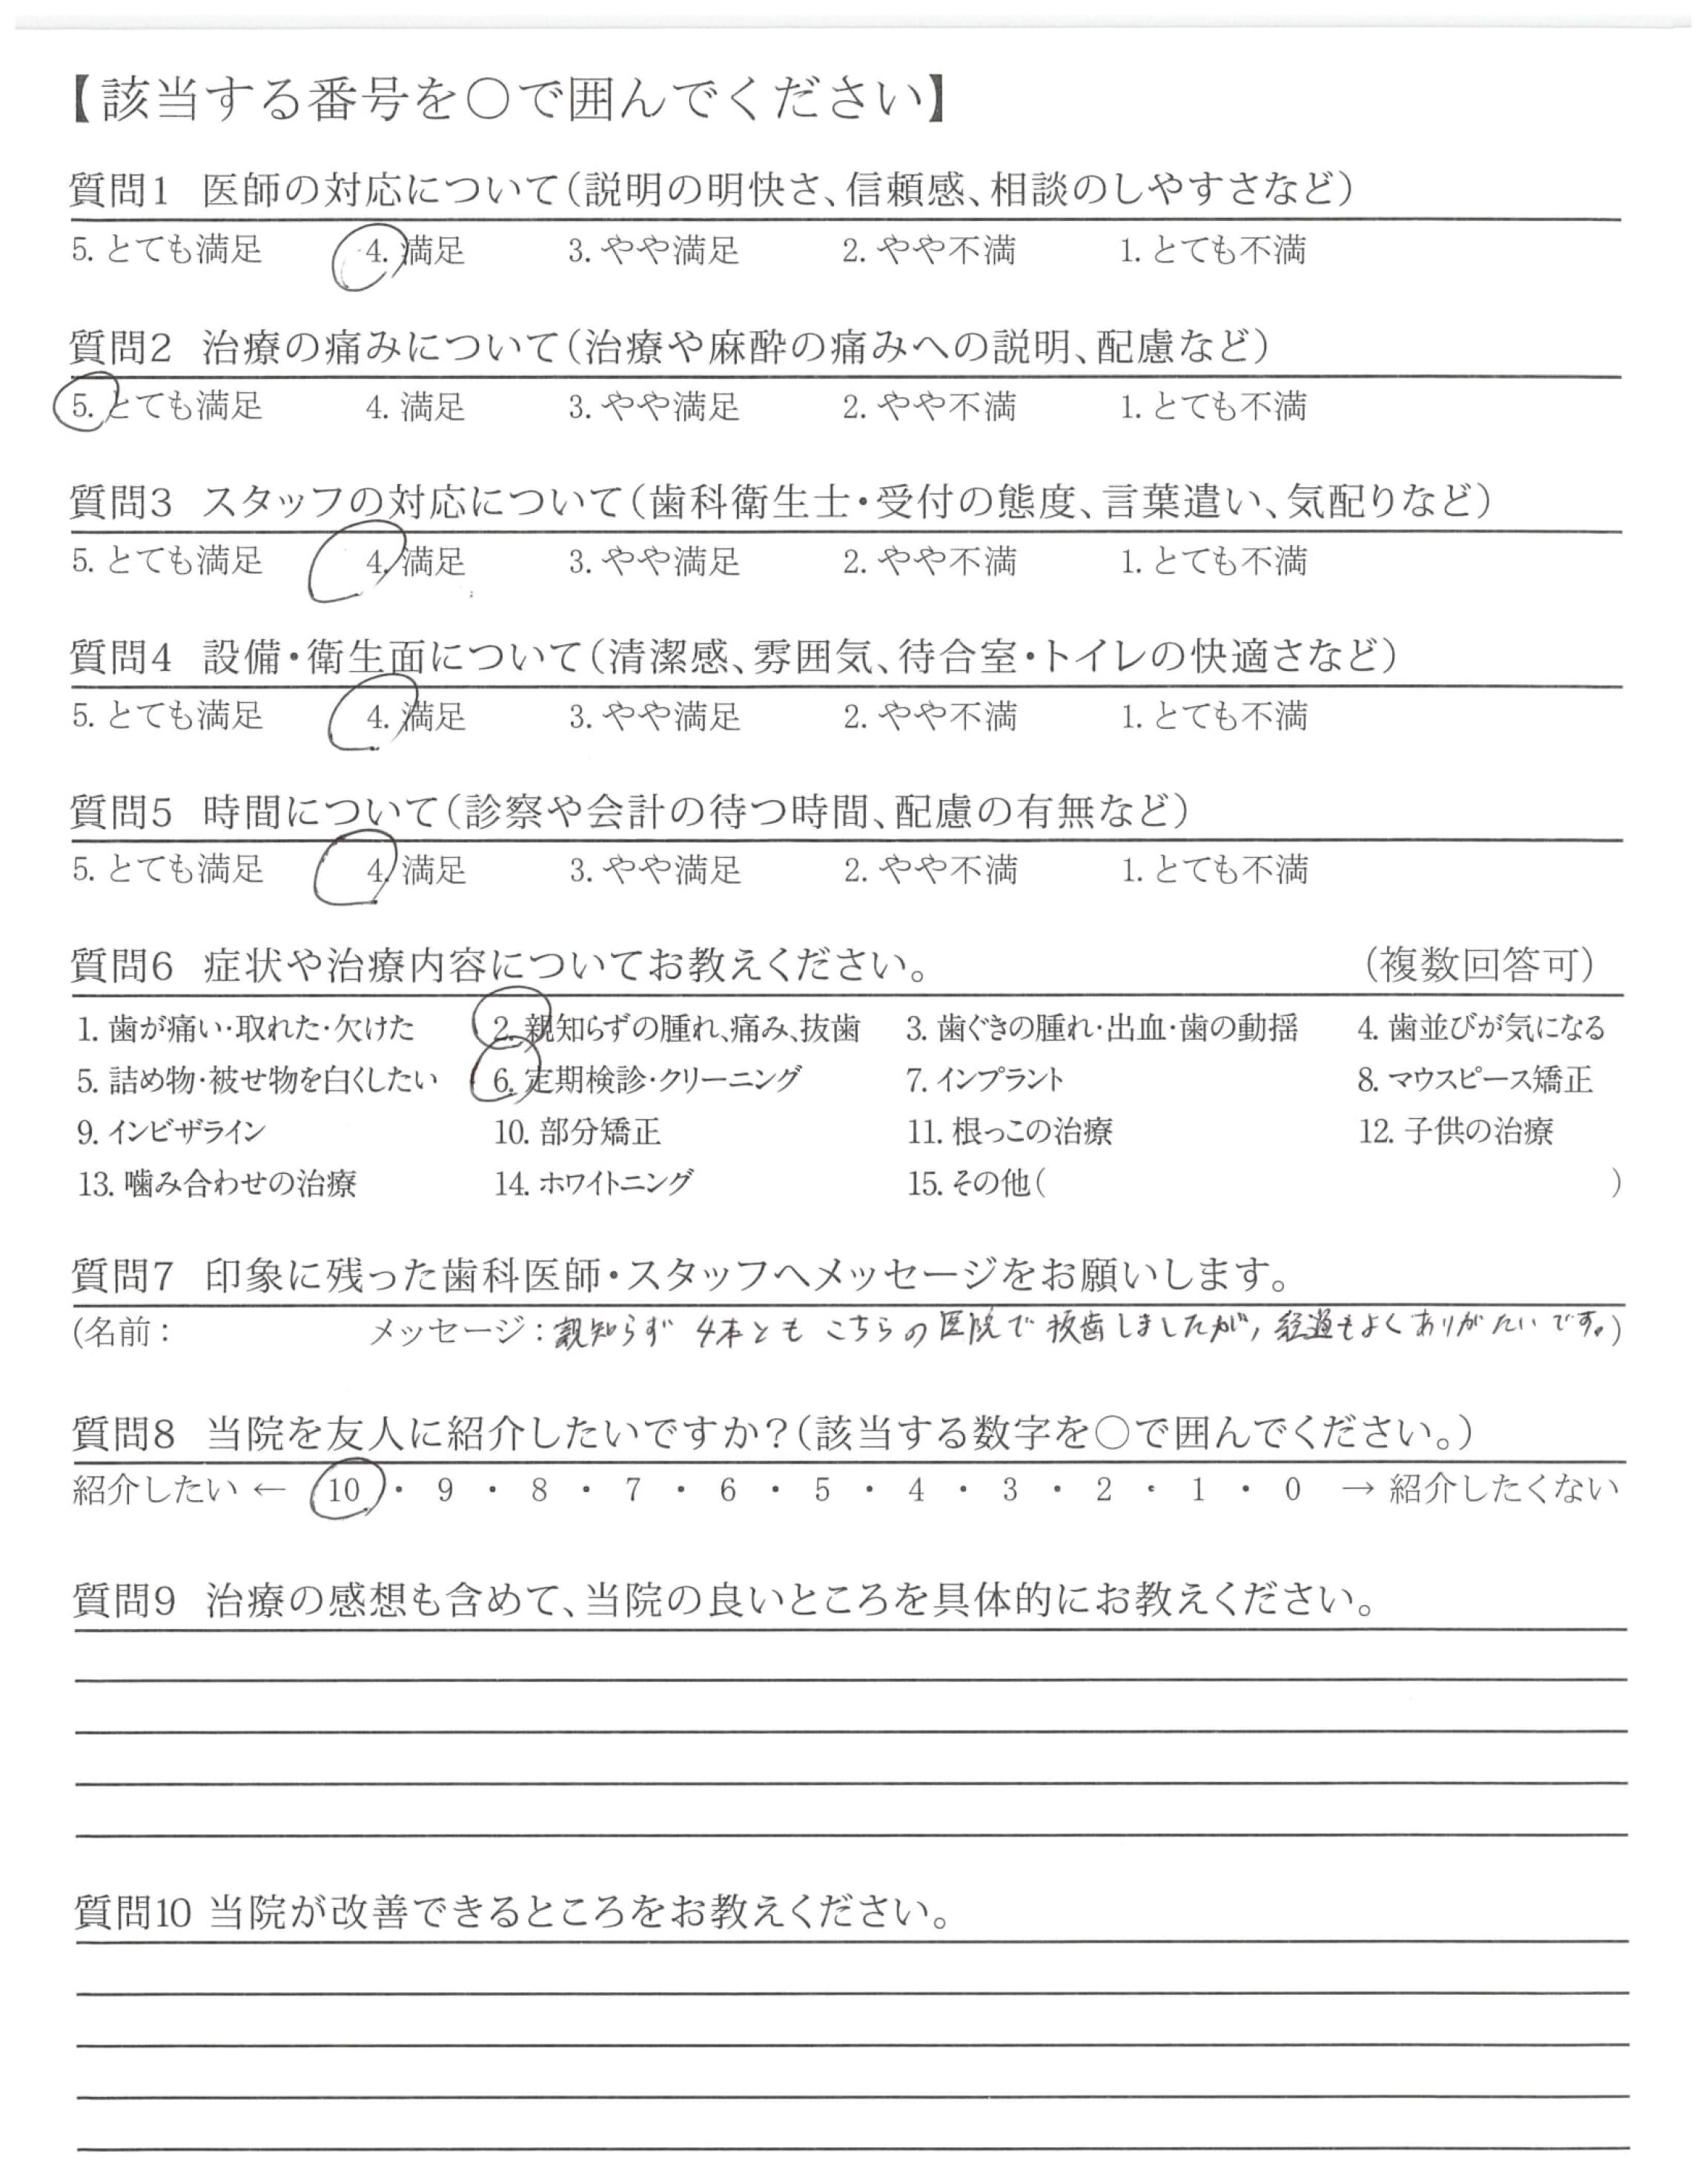 【該当する番号を○で囲んでください】
質問1 医師の対応について(説明の明快さ、信頼感、相談のしやすさなど)
5. とても満足 4. 満足 3. やや満足 2. やや不満 1. とても不満
質問2 治療の痛みについて(治療や麻酔の痛みへの説明、配慮など)
5. とても満足 4. 満足 3. やや満足 2. やや不満 1. とても不満
質問3 スタッフの対応について(歯科衛生士・受付の態度、言葉遣い、気配りなど)
5. とても満足 4. 満足 3. やや満足 2. やや不満 1. とても不満
質問4 設備・衛生面について(清潔感、雰囲気、待合室・トイレの快適さなど)
5. とても満足 4. 満足 3. やや満足 2. やや不満 1. とても不満
質問5 時間について(診察や会計の待つ時間、配慮の有無など)
5. とても満足 4. 満足 3. やや満足 2. やや不満 1. とても不満
質問6 症状や治療内容についてお教えください。 (複数回答可)
1. 歯が痛い・取れた・欠けた 2. 親知らずの腫れ、痛み、抜歯 3. 歯ぐきの腫れ・出血・歯の動揺 4. 歯並びが気になる
5. 詰め物・被せ物を白くしたい 6. 定期検診・クリーニング 7. インプラント 8. マウスピース矯正
9. インビザライン 10. 部分矯正 11. 根っこの治療 12. 子供の治療
13. 噛み合わせの治療 14. ホワイトニング 15. その他( )
質問7 印象に残った歯科医師・スタッフへメッセージをお願いします。
(名前: メッセージ:親知らず 4本とも こちらの医院で抜歯しましたが, 経過もよくありがたいです。)
質問8 当院を友人に紹介したいですか?(該当する数字を○で囲んでください。)
紹介したい ← 10 ・ 9 ・ 8 ・ 7 ・ 6 ・ 5 ・ 4 ・ 3 ・ 2 ・ 1 ・ 0 → 紹介したくない
質問9 治療の感想も含めて、当院の良いところを具体的にお教えください。
質問10 当院が改善できるところをお教えください。